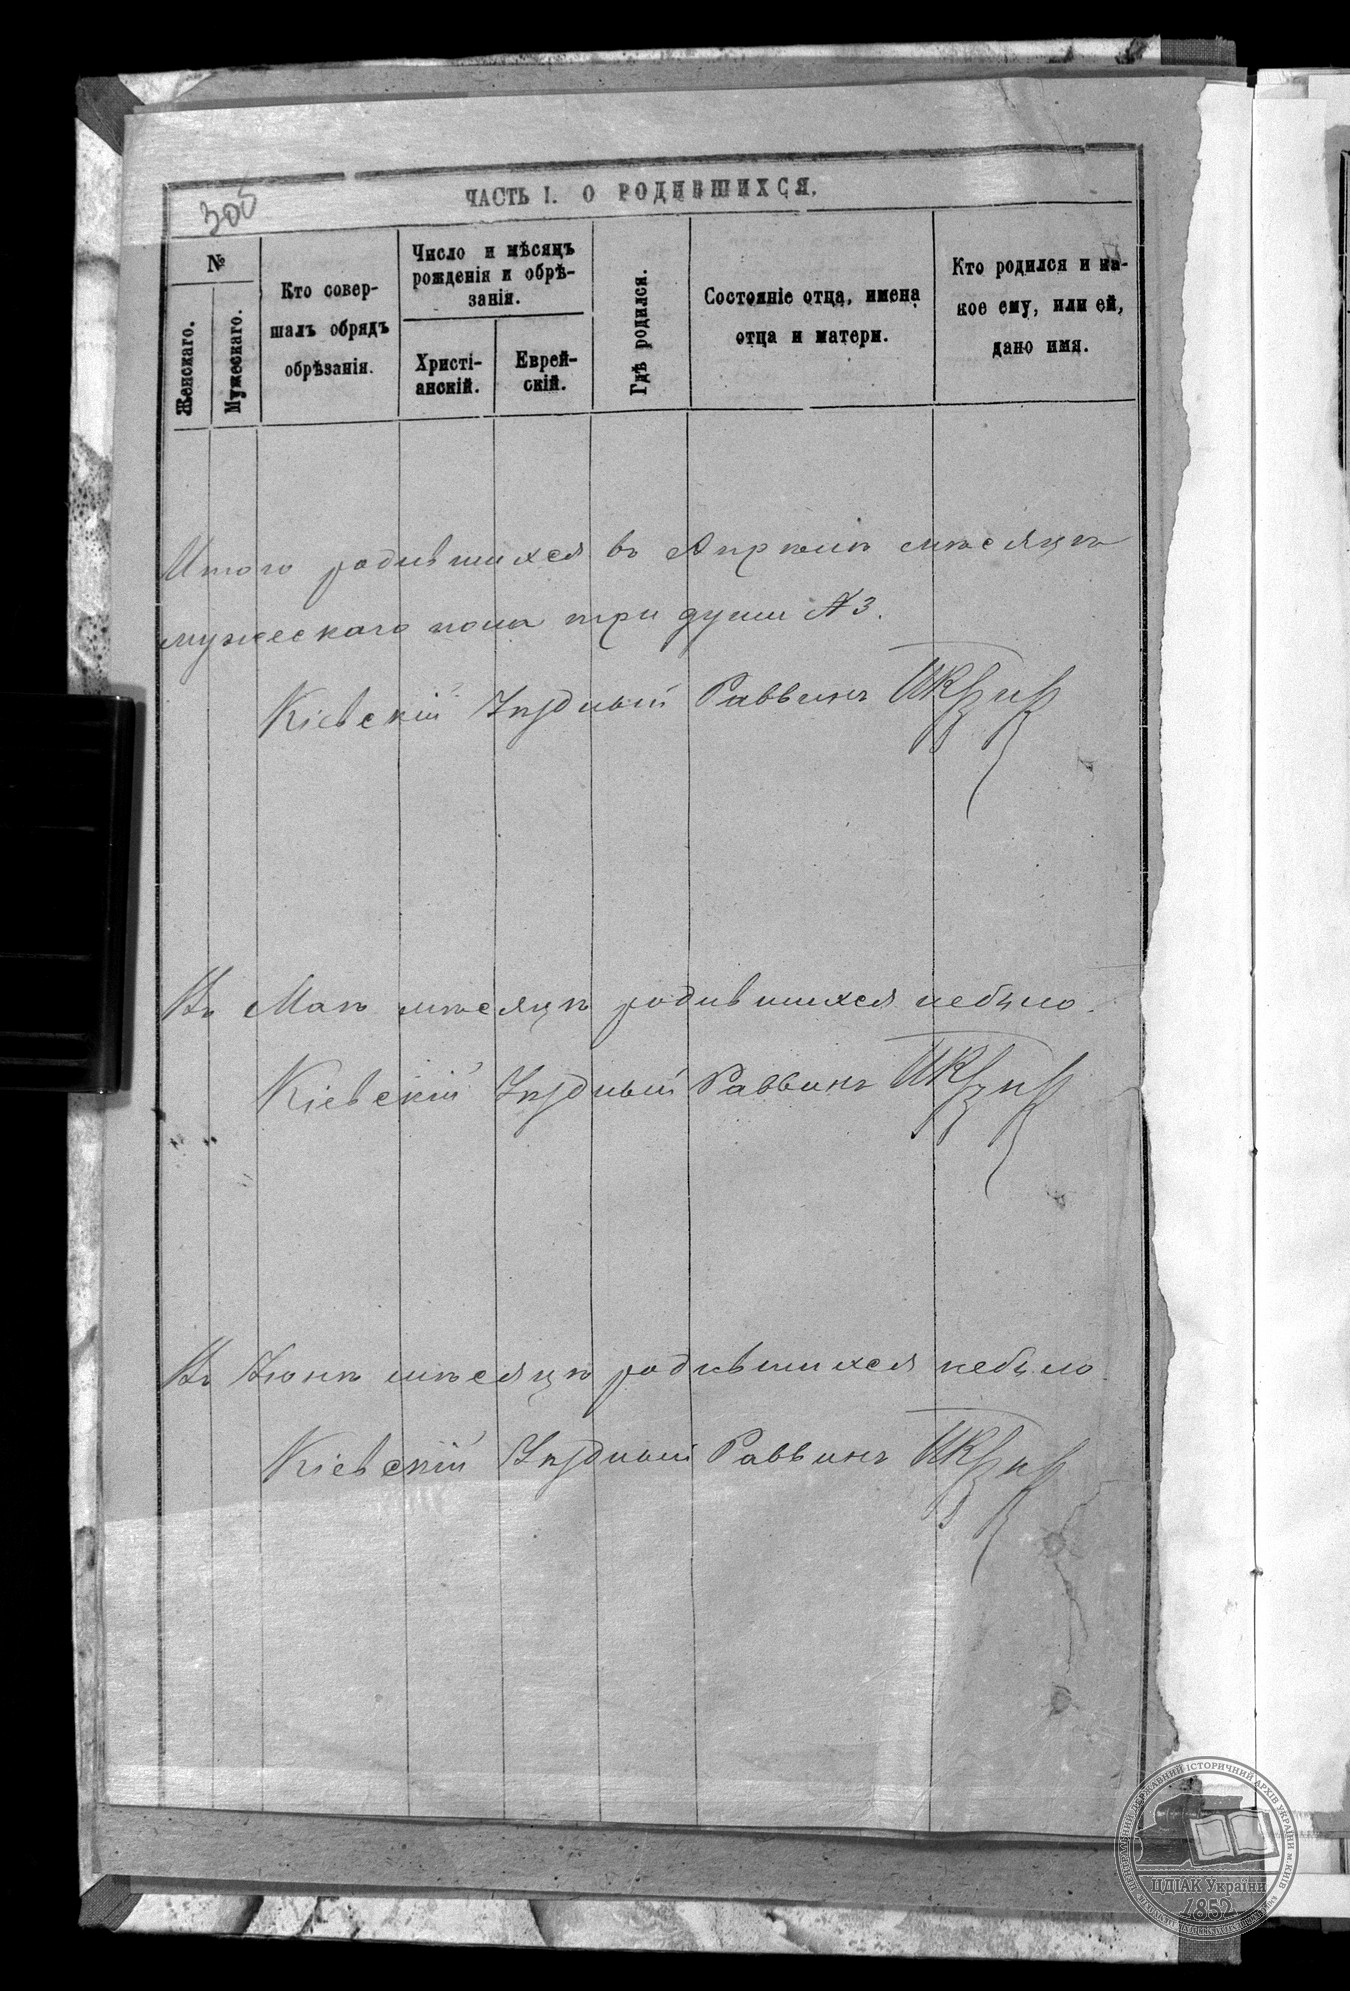 300
ЧАСТЬ I. О РОДИВШИХСЯ.
№
Женскаго.
Мужескаго.
Кто совер-
шалъ обрядъ
обрѣзанія.
Число и мѣсяцъ
рожденія и обрѣ-
занія.
Христі-
анскій.
Еврей-
скій.
Гдѣ родился.
Состояніе отца, имена
отца и матери.
Кто родился и ка-
кое ему, или ей,
дано имя.
Итого родившихся въ Апрѣлѣ мѣсяцѣ
мужескаго пола три души №3.
Кіевскій Уѣздный Раввинъ
Въ Маѣ мѣсяцѣ родившихся небыло.
Кіевскій Уѣздный Раввинъ
Въ Іюнѣ мѣсяцѣ родившихся небыло.
Кіевскій Уѣздный Раввинъ
ЦЕНТРАЛЬНИЙ ДЕРЖАВНИЙ ІСТОРИЧНИЙ АРХІВ УКРАЇНИ м.КИЇВ
ЦДІАК України
1852